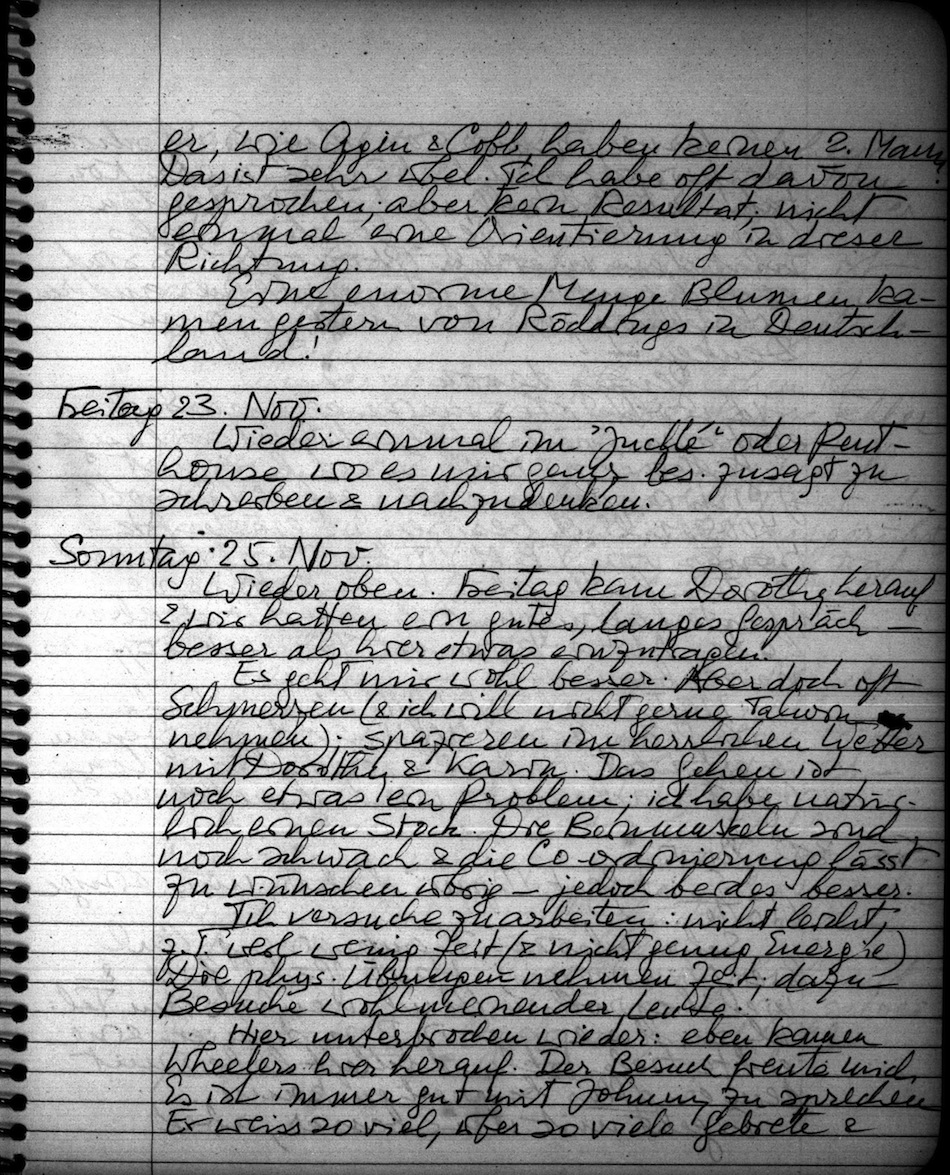 er, wie Agin & Cobb haben keinen 2. Mann?
Das ist sehr übel. Ich habe oft davon
gesprochen; aber kein Resultat, nicht
einmal eine Orientierung in dieser
Richtung.
Eine enorme Menge Blumen ka-
men gestern von Röddings in Deutsch-
land!
Freitag 23. Nov.
Wieder einmal im "Juchhé" oder Pent-
house wo es mir ganz bes. zusagt zu
schreiben & nachzudenken.
Sonntag 25. Nov.
Wieder oben. Freitag kam Dorothy herauf
& wir hatten ein gutes, langes Gespräch —
besser als hier etwas einzutragen.
Es geht mir wohl besser. Aber doch oft
Schmerzen (& ich will nicht gerne Talwin
nehmen); spazieren im herrlichen Wetter
mit Dorothy & Karin. Das Gehen ist
noch etwas ein Problem; ich habe natür-
lich einen Stock. Die Beinmuskeln sind
noch schwach & die Co-ordinierung lässt
zu wünschen übrig — jedoch beides besser.
Ich versuche zu arbeiten: nicht leicht,
z.T. weil wenig Zeit (& nicht genug Energie)
Die phys. Übungen nehmen Zeit, dazu
Besuche wohlmeinender Leute.
Hier unterbrochen wieder: eben kamen
Wheelers hier herauf. Der Besuch freute mich,
Es ist immer gut mit Johnny zu sprechen
Er weiss so viel, über so viele Gebiete &